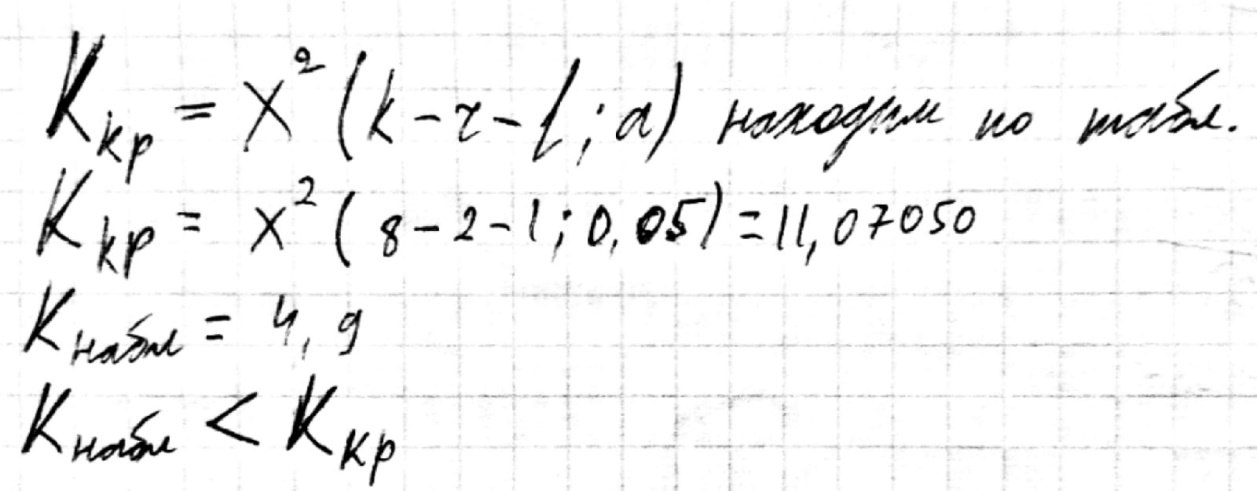 Kкр = X² (k - r - 1; α) находим по табл.
Kкр = X² (8 - 2 - 1; 0,05) = 11,07050
Kнабл = 4,9
Kнабл < Kкр